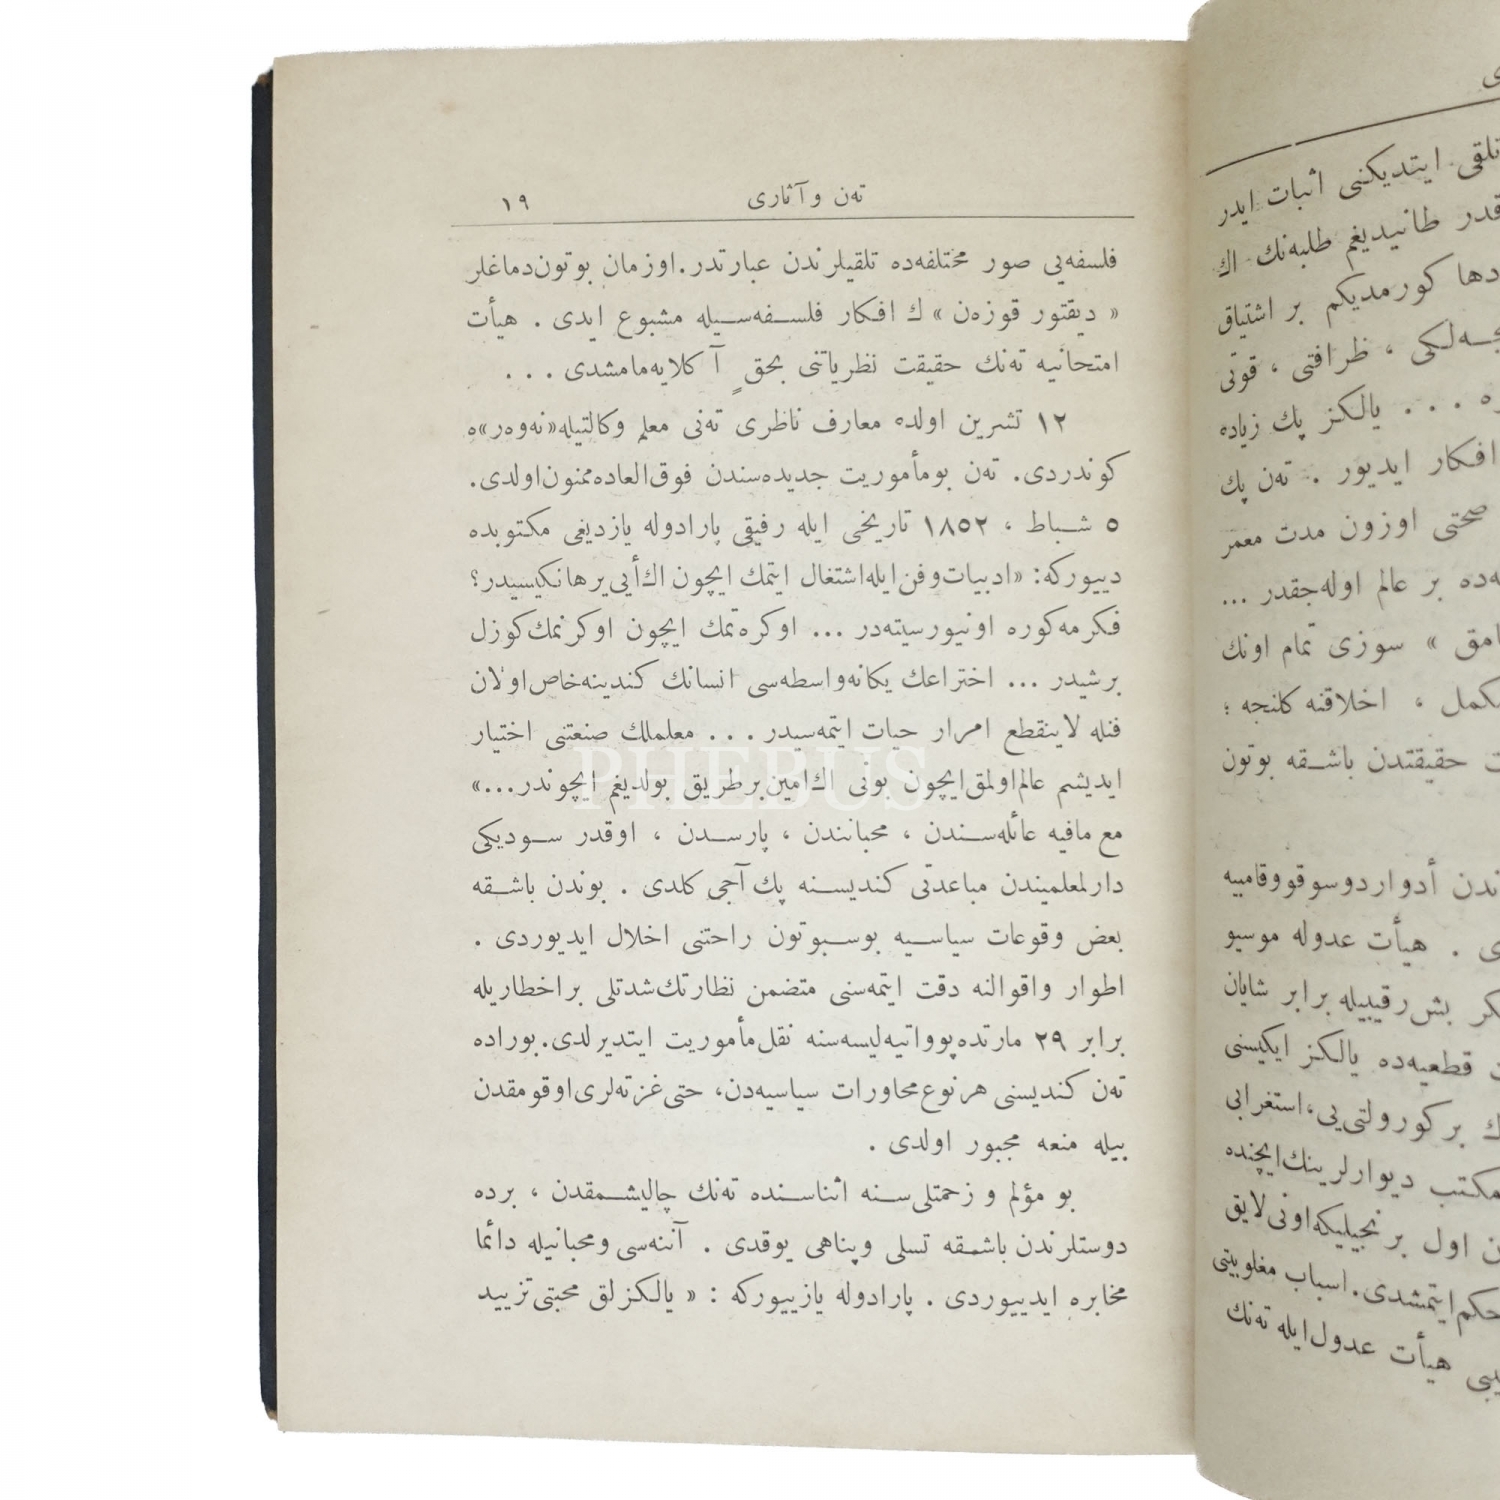 ته‌ن و آثاری ١٩
فلسفه‌یی صور مختلفه‌ده تلقیلرندن عبارتدر. اوزمان بوتون دماغلر
« دیقتور قوزه‌ن » ك افكار فلسفه‌سیله مشبوع ایدی . هیأت
امتحانیه ته‌نك حقیقت نظریاتنی بحقٍ آ كلایه‌مامشدی . . .
١٢ تشرین اولده معارف ناظری ته‌نی معلم وكالتیله «نه‌وه‌ر»ه
كوندردی. ته‌ن بومأموریت جدیده‌سندن فوق‌العاده ممنون اولدی.
٥ شباط ، ١٨٥٢ تاریخی ایله رفیقی پارادوله یازدیغی مكتوبده
دییوركه: « ادبیات وفن ایله اشتغال ایتمك ایچون اك أیی یر هانكیسیدر؟
فكرمه كوره اونیورسیته‌در ... اوكره‌تمك ایچون اوكرنمك كوزل
برشیدر ... اختراعك یكانه واسطه‌سی انسانك كندینه خاص اولان
فنله لاینقطع امرار حیات ایتمه‌سیدر . . . معلملك صنعتنی اختیار
ایدیشم عالم اولمق ایچون بونی اك امین بر طریق بولدیغم ایچوندر...»
مع مافیه عائله‌سندن ، محبانندن ، پارسدن ، اوقدر سودیكی
دارلمعلمیندن مباعدتی كندیسنه پك آجی كلدی . بوندن باشقه
بعض وقوعات سیاسیه بوسبوتون راحتنی اخلال ایدیوردی .
اطوار واقوالنه دقت ایتمه‌سنی متضمن نظارتك شدتلی بر اخطاریله
برابر ٢٩ مارتده پوواتیه لیسه‌سنه نقل مأموریت ایتدیرلدی. بوراده
ته‌ن كندیسنی هرنوع محاورات سیاسیه‌دن، حتی غزته‌لری اوقومقدن
بیله منعه مجبور اولدی .
بو مؤلم و زحمتلی سنه اثناسنده ته‌نك چالیشمقدن ، برده
دوستلرندن باشمقه تسلی وپناهی یوقدی . آننه‌سی ومحبانیله دائما
مخابره ایدییوردی . پارادوله یازییوركه : « یالكزلق محبتی تزیید
تلقی ایتدیكنی اثبات ایدر
قدر طانیدیغم طلبه‌نك اك
دها كورمدیكم بر اشتیاق
، ظرافتی ، قوتی
. . . یالكز پك زیاده
افكار ایدیور . ته‌ن پك
صحتی اوزون مدت معمر
بر عالم اوله‌جقدر ...
» سوزی تمام اونك
، اخلاقنه كلنجه ؛
حقیقتدن باشقه بوتون
ندن أدوار دوسوقو وقامبیه
. هیأت عدوله موسیو
بش رقیبیله برابر شایان
قطعیه‌ده یالكز ایكیسنی
بر كورولتی‌یی، استغرابی
مكتب دیوارلرینك ایچنده
اول بر نجیلیكه اونی لایق
حكم ایتمشدی. اسباب مغلوبیتی
هیأت عدول ایله ته‌نك
PHEBUS